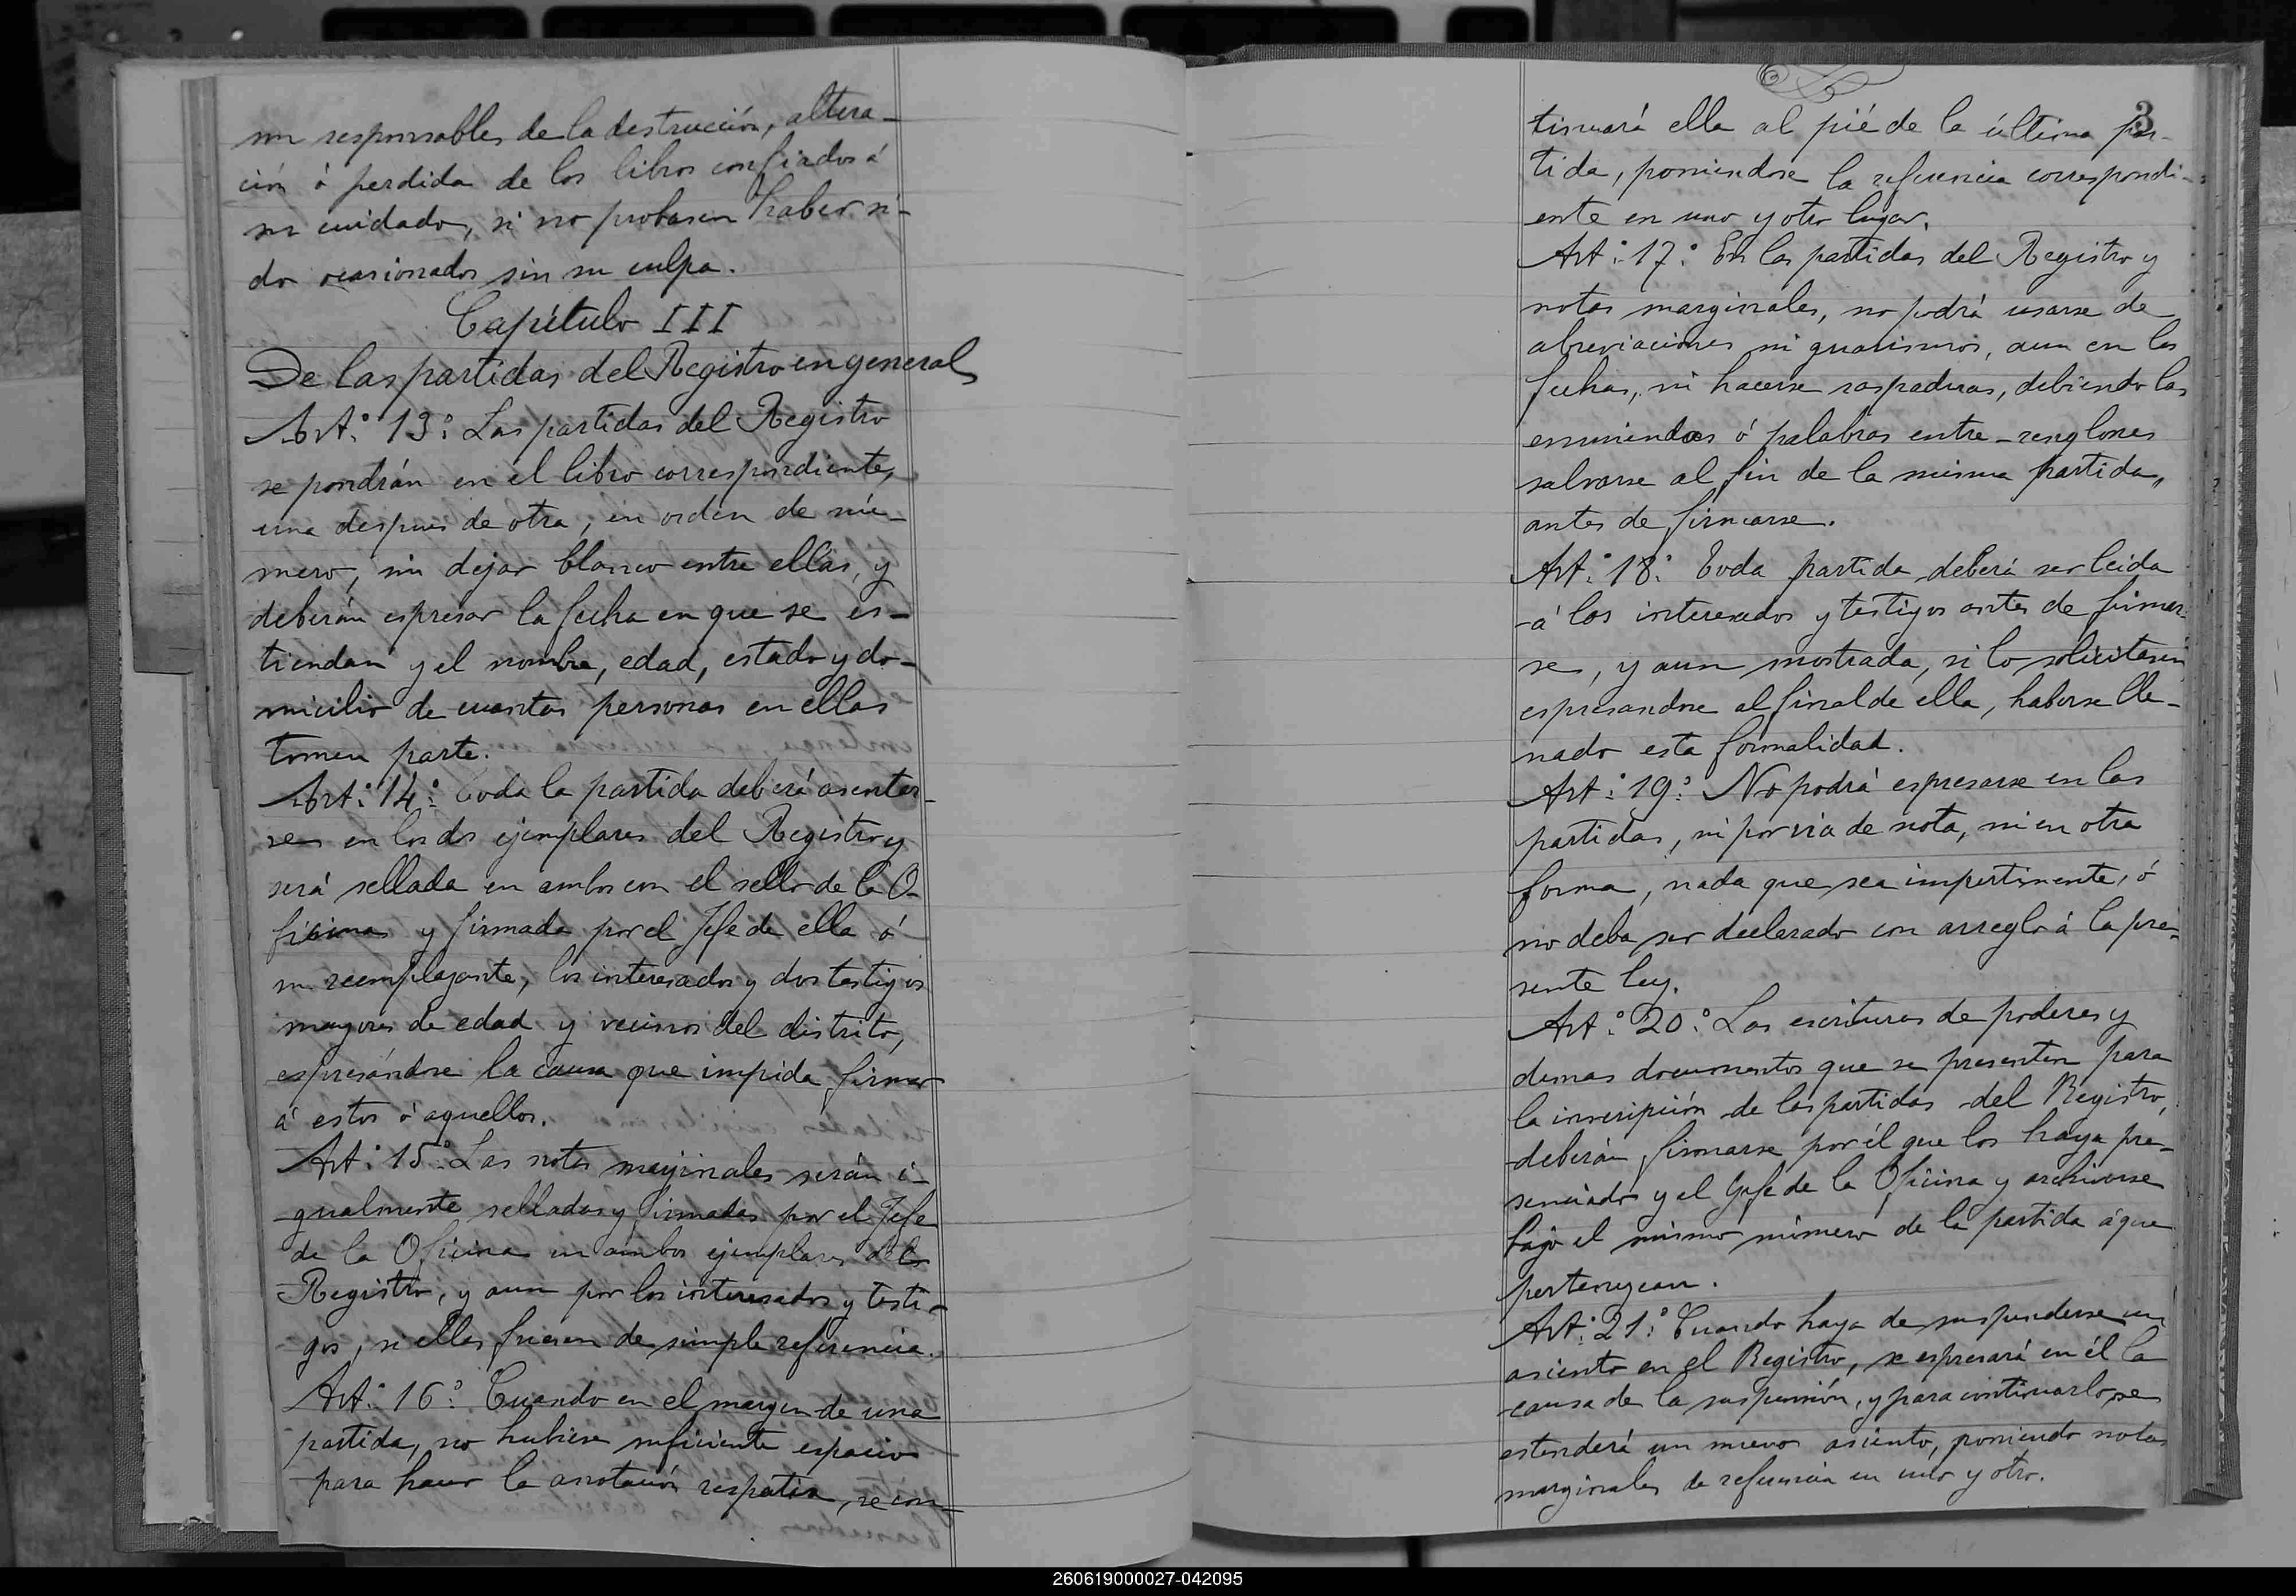 son responsables de la destrucción, altera-
ción ó perdida de los libros confiados á
su cuidado, si no probasen haber si-
do ocasionados sin su culpa.
Capítulo III
De las partidas del Registro en general
Art.º 13º. Las partidas del Registro
se pondrán en el libro correspondiente,
una despues de otra, en orden de nú-
mero, sin dejar blanco entre ellas, y
deberán espresar la fecha en que se es-
tiendan y el nombre, edad, estado y do-
micilio de cuantas personas en ellas
tomen parte.
Art.º 14º. Toda la partida deberá asentar-
se en los dos ejemplares del Registro y
será sellada en ambos con el sello de la O-
ficina y firmada por el Jefe de ella ó
su reemplazante, los interesados y dos testigos
mayores de edad y vecinos del distrito,
espresándose la causa que impida firmar
á estos ó aquellos.
Art.º 15º. Las notas marjinales serán i-
gualmente selladas y firmadas por el Jefe
de la Oficina en ambos ejemplares del
Registro, y aun por los interesados y testi-
gos, si ellas fuesen de simple referencia.
Art.º 16º. Cuando en el margen de una
partida, no hubiese suficiente espacio
para hacer la anotación respectiva, se con-
3
tinuará ella al pié de la última par-
tida, poniendose la referencia correspondi-
ente en uno y otro lugar.
Art.º 17º. En las partidas del Registro y
notas marginales, no podrá usarse de
abreviaciones ni guarismos, aun en las
fechas, ni hacerse raspaduras, debiendo las
enmiendas ó palabras entre-renglones
salvarse al fin de la misma partida,
antes de firmarse.
Art.º 18º. Toda partida deberá ser leida
á los interesados y testigos antes de firmar-
se, y aun mostrada, si lo solicitasen
espresandose al final de ella, haberse lle-
nado esta formalidad.
Art.º 19º. No podrá espresarse en las
partidas, ni por via de nota, ni en otra
forma, nada que sea impertinente, ó
no deba ser declarado con arreglo á la pre-
sente ley.
Art.º 20º. Las escrituras de poderes y
demas documentos que se presenten para
la inscripción de las partidas del Registro,
deberán firmarse por él que los haya pre-
senciado y el Gefe de la Oficina y archivarse
bajo el mismo número de la partida á que
pertenezcan.
Art.º 21º. Cuando haya de suspenderse un
asiento en el Registro, se espresará en él la
causa de la suspensión, y para continuarlo, se
estenderá un nuevo asiento, poniendo notas
marginales de referencia en uno y otro.
260619000027-042095